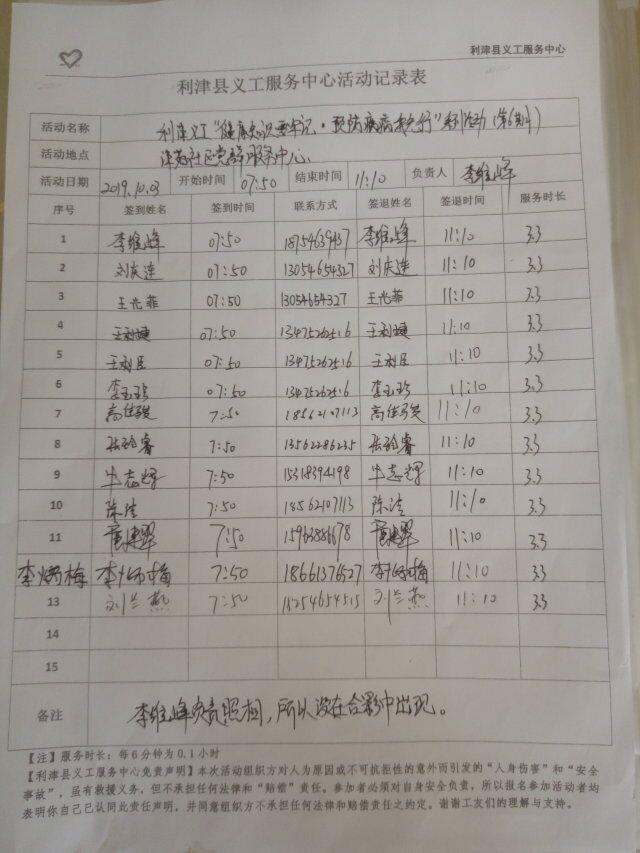 利津县义工服务中心
利津县义工服务中心活动记录表
活动名称 利津义工“健康知识要牢记·预防疾病 系列活动(第 期)
活动地点 社区党群服务中心.
活动日期 2019.10.03 开始时间 07:50 结束时间 11:10 负责人 李维峰
序号 签到姓名 签到时间 联系方式 签退姓名 签退时间 服务时长
1 李维峰 07:50 18754639437 李维峰 11:10 3.3
2 刘庆莲 07:50 13054654327 刘庆莲 11:10 3.3
3 王光菲 07:50 13054654327 王光菲 11:10 3.3
4 王利婕 07:50 13475262516 王利婕 11:10 3.3
5 王利臣 07:50 13475262516 王利臣 11:10 3.3
6 李玉珍 07:50 13475262516 李玉珍 11:10 3.3
7 高佳琁 7:50 18562107113 高佳琁 11:10 3.3
8 张 睿 7:50 13562286235 张 睿 11:10 3.3
9 牛志辉 7:50 15318394198 牛志辉 11:10 3.3
10 陈洁 7:50 18562107113 陈洁 11:10 3.3
11 7:50 15963886678 11:10 3.3
李炳梅 李炳梅 7:50 18661376527 李炳梅 11:10 3.3
13 刘兰燕 7:50 18254654515 刘兰燕 11:10 3.3
14
15
备注 李维峰负责照相,所以没在合影中出现。
【注】服务时长：每6分钟为0.1小时
【利津县义工服务中心免责声明】本次活动组织方对人为原因或不可抗拒性的意外而引发的“人身伤害”和“安全
事故”，虽有救援义务，但不承担任何法律和“赔偿”责任。参加者必须对自身安全负责，所以报名参加活动者均
表明你自己已认同此责任声明，并同意组织方不承担任何法律和赔偿责任之约定。谢谢工友们的理解与支持。